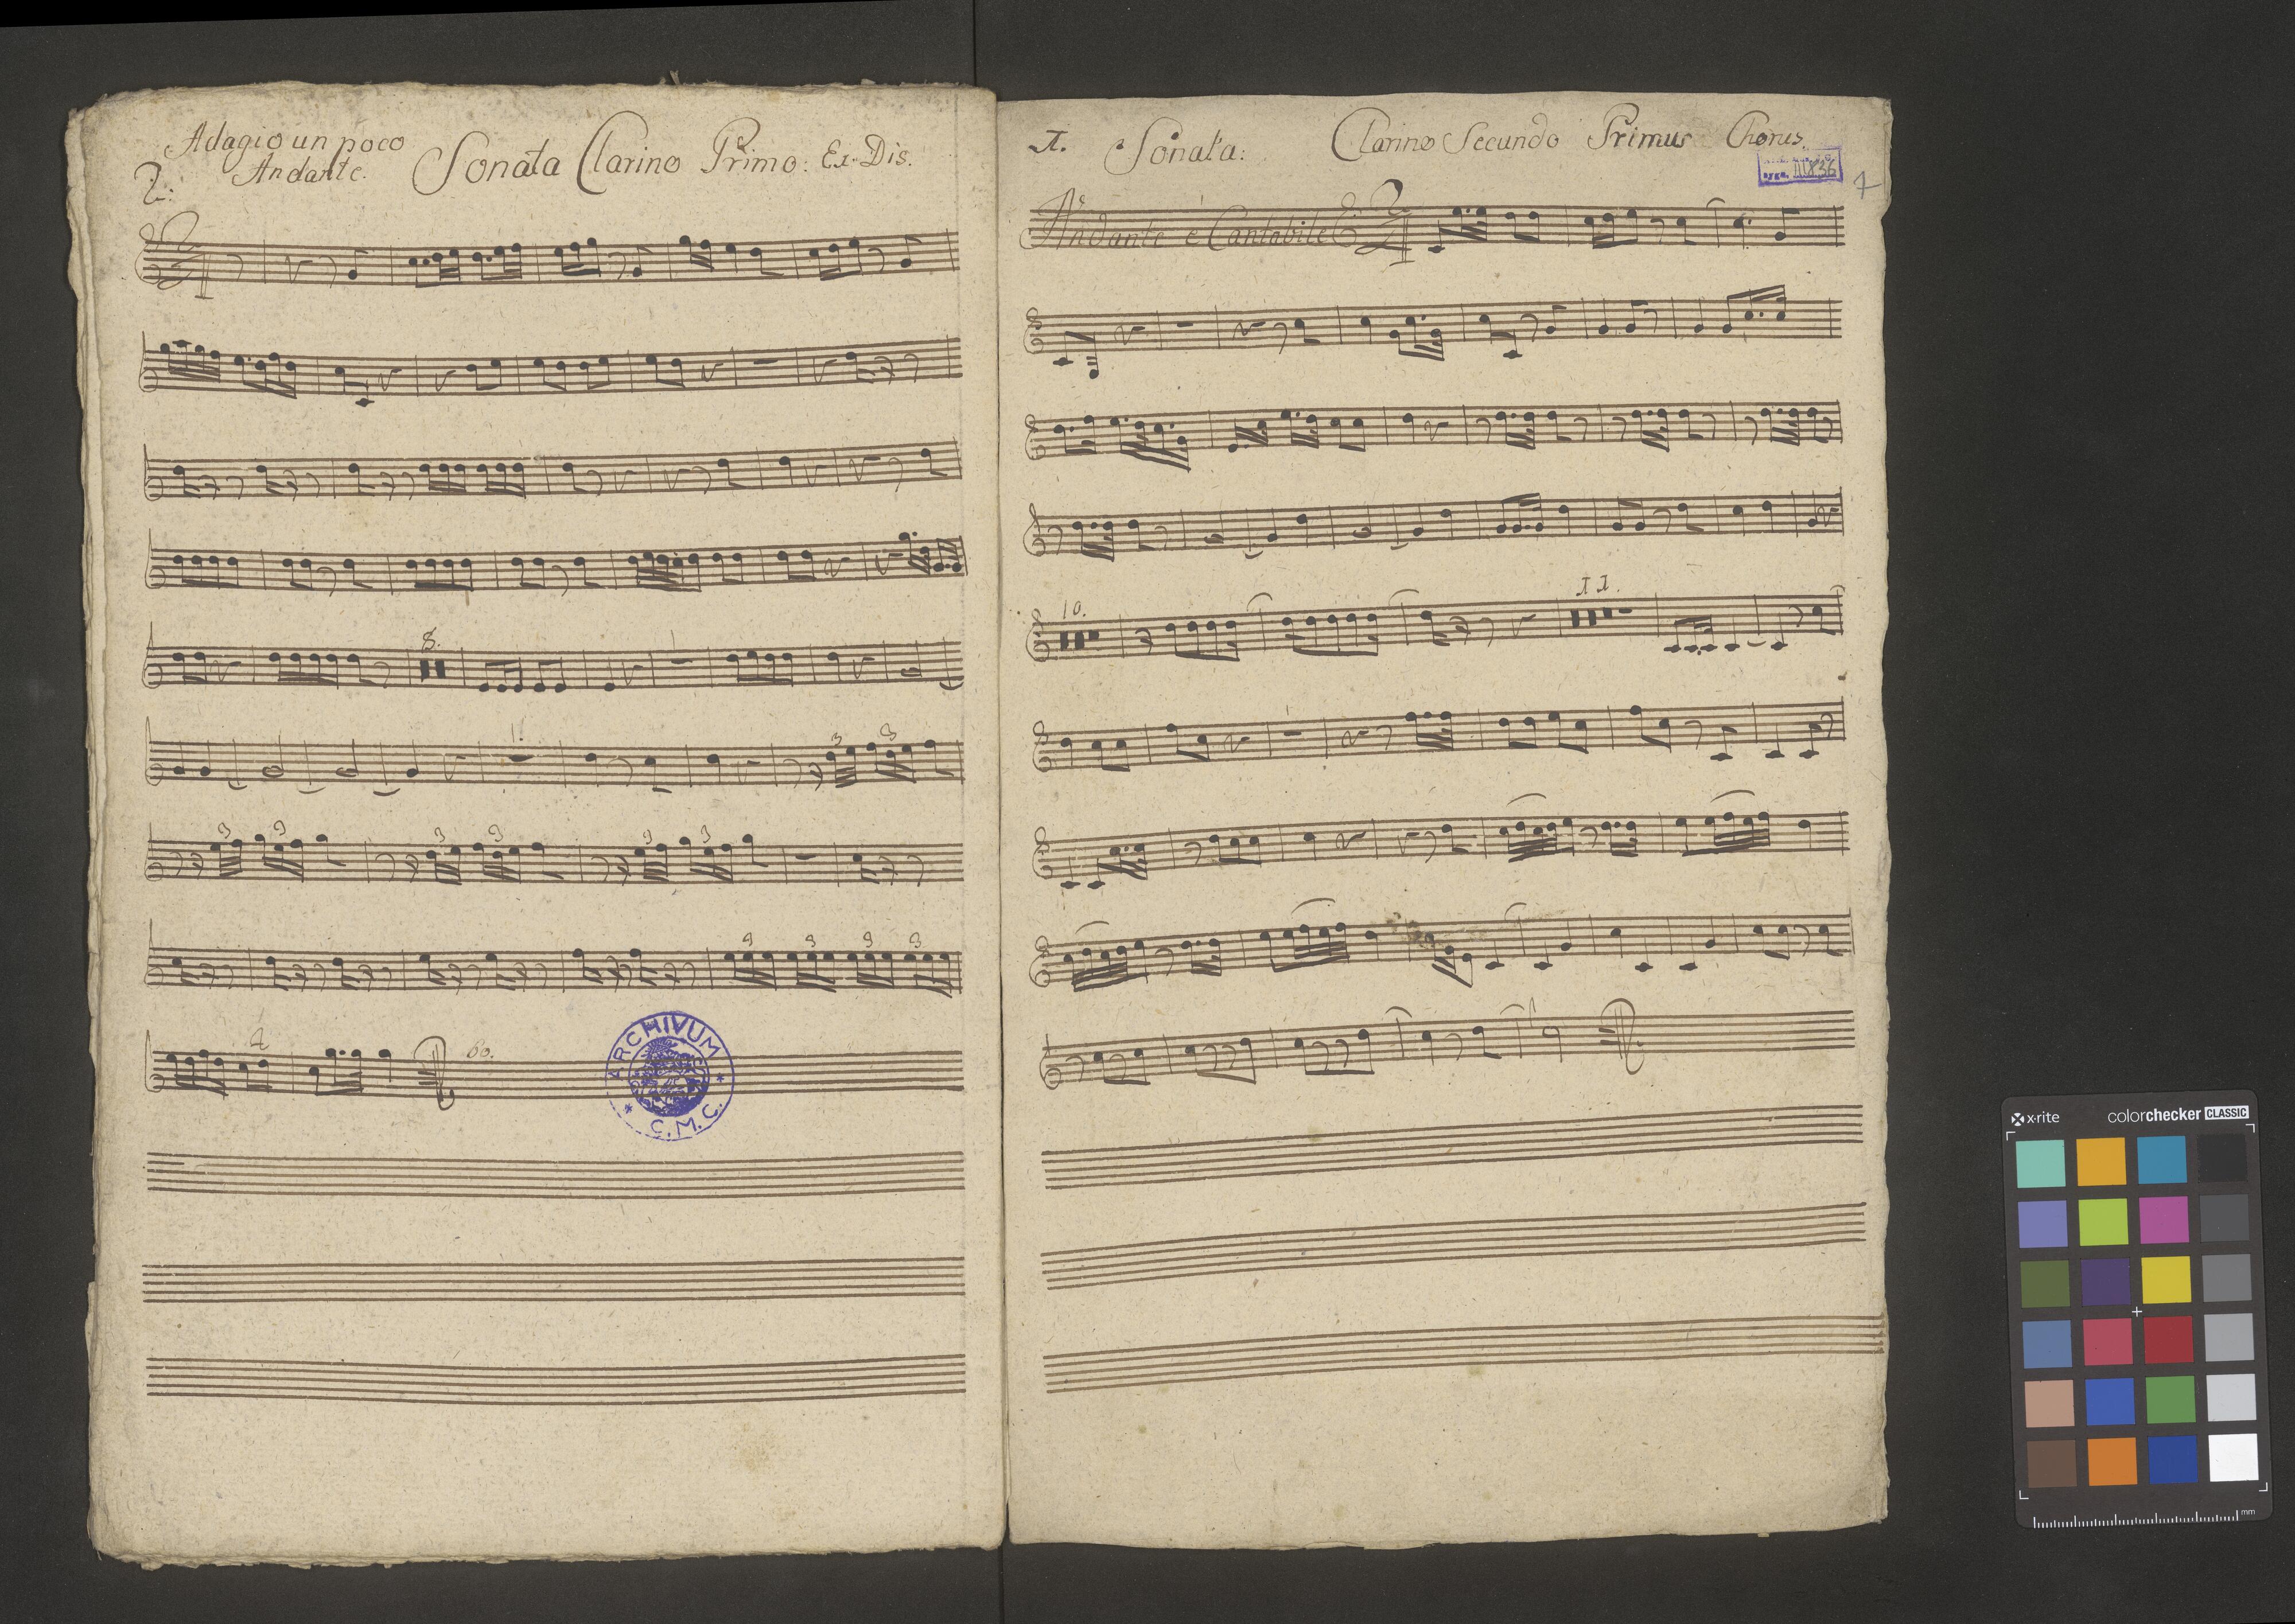 Adagio un poco
Andante.
2.
Sonata Clarino Primo: Ex Dis.
8.
1.
3 3
3 3 3 3 3 3
3 3 3 3
ARCHIVUM
C.M.C.
I. Sonata: Clarino Secundo Primus Chorus.
III 836
7
Andante è Cantabile
10. II.
x·rite colorchecker CLASSIC
mm